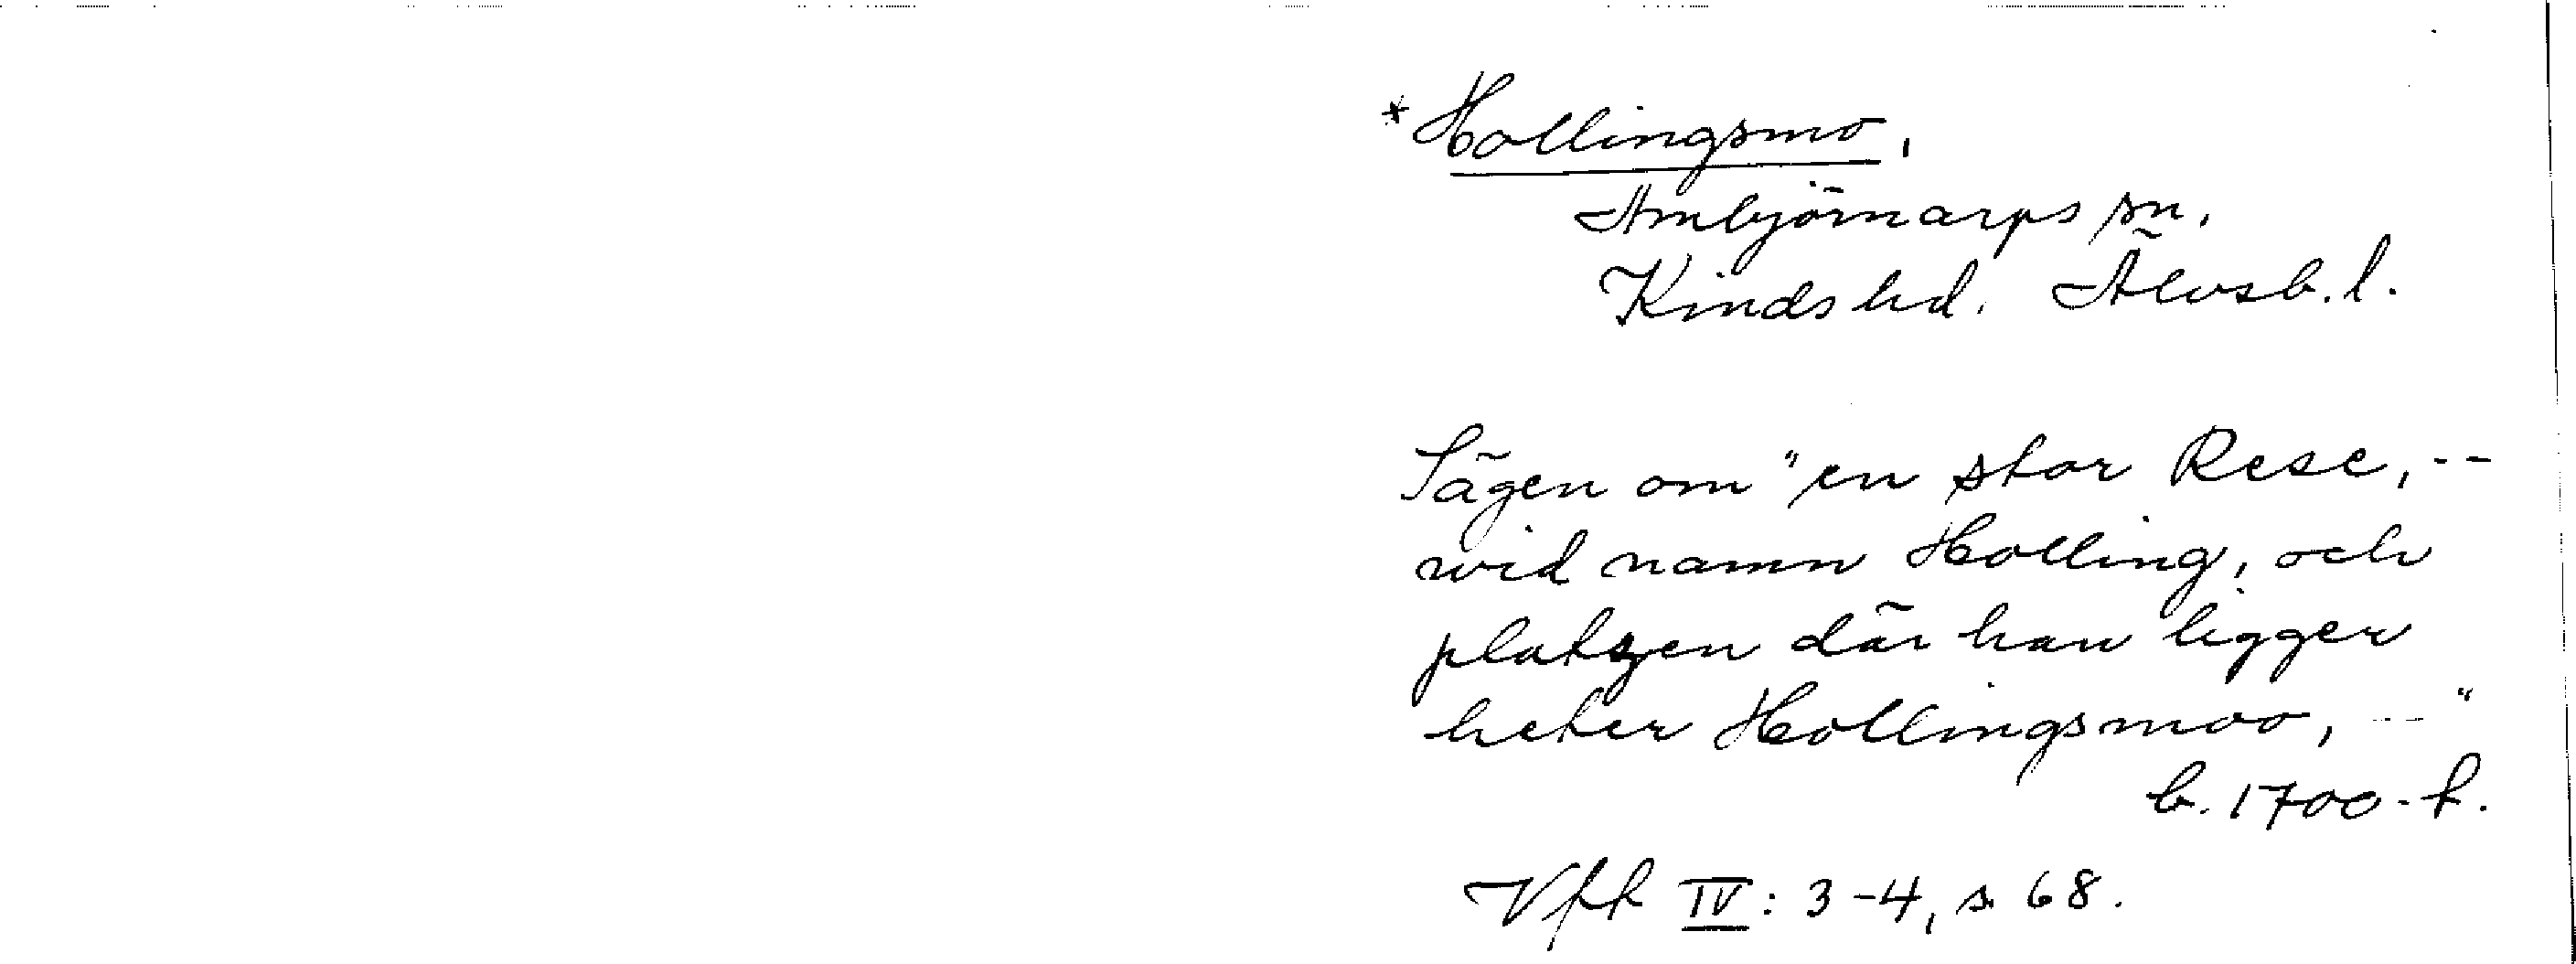 *Hollingsmo,
Ambjörnarps sn.
Kinds hd. Älvsb. l.
Sägen om "en stor Rese, --
wid namn Holling, och
platzen där han ligger
heter Hollingsmoo, --"
b. 1700-t.
Vft IV: 3-4, s 68.